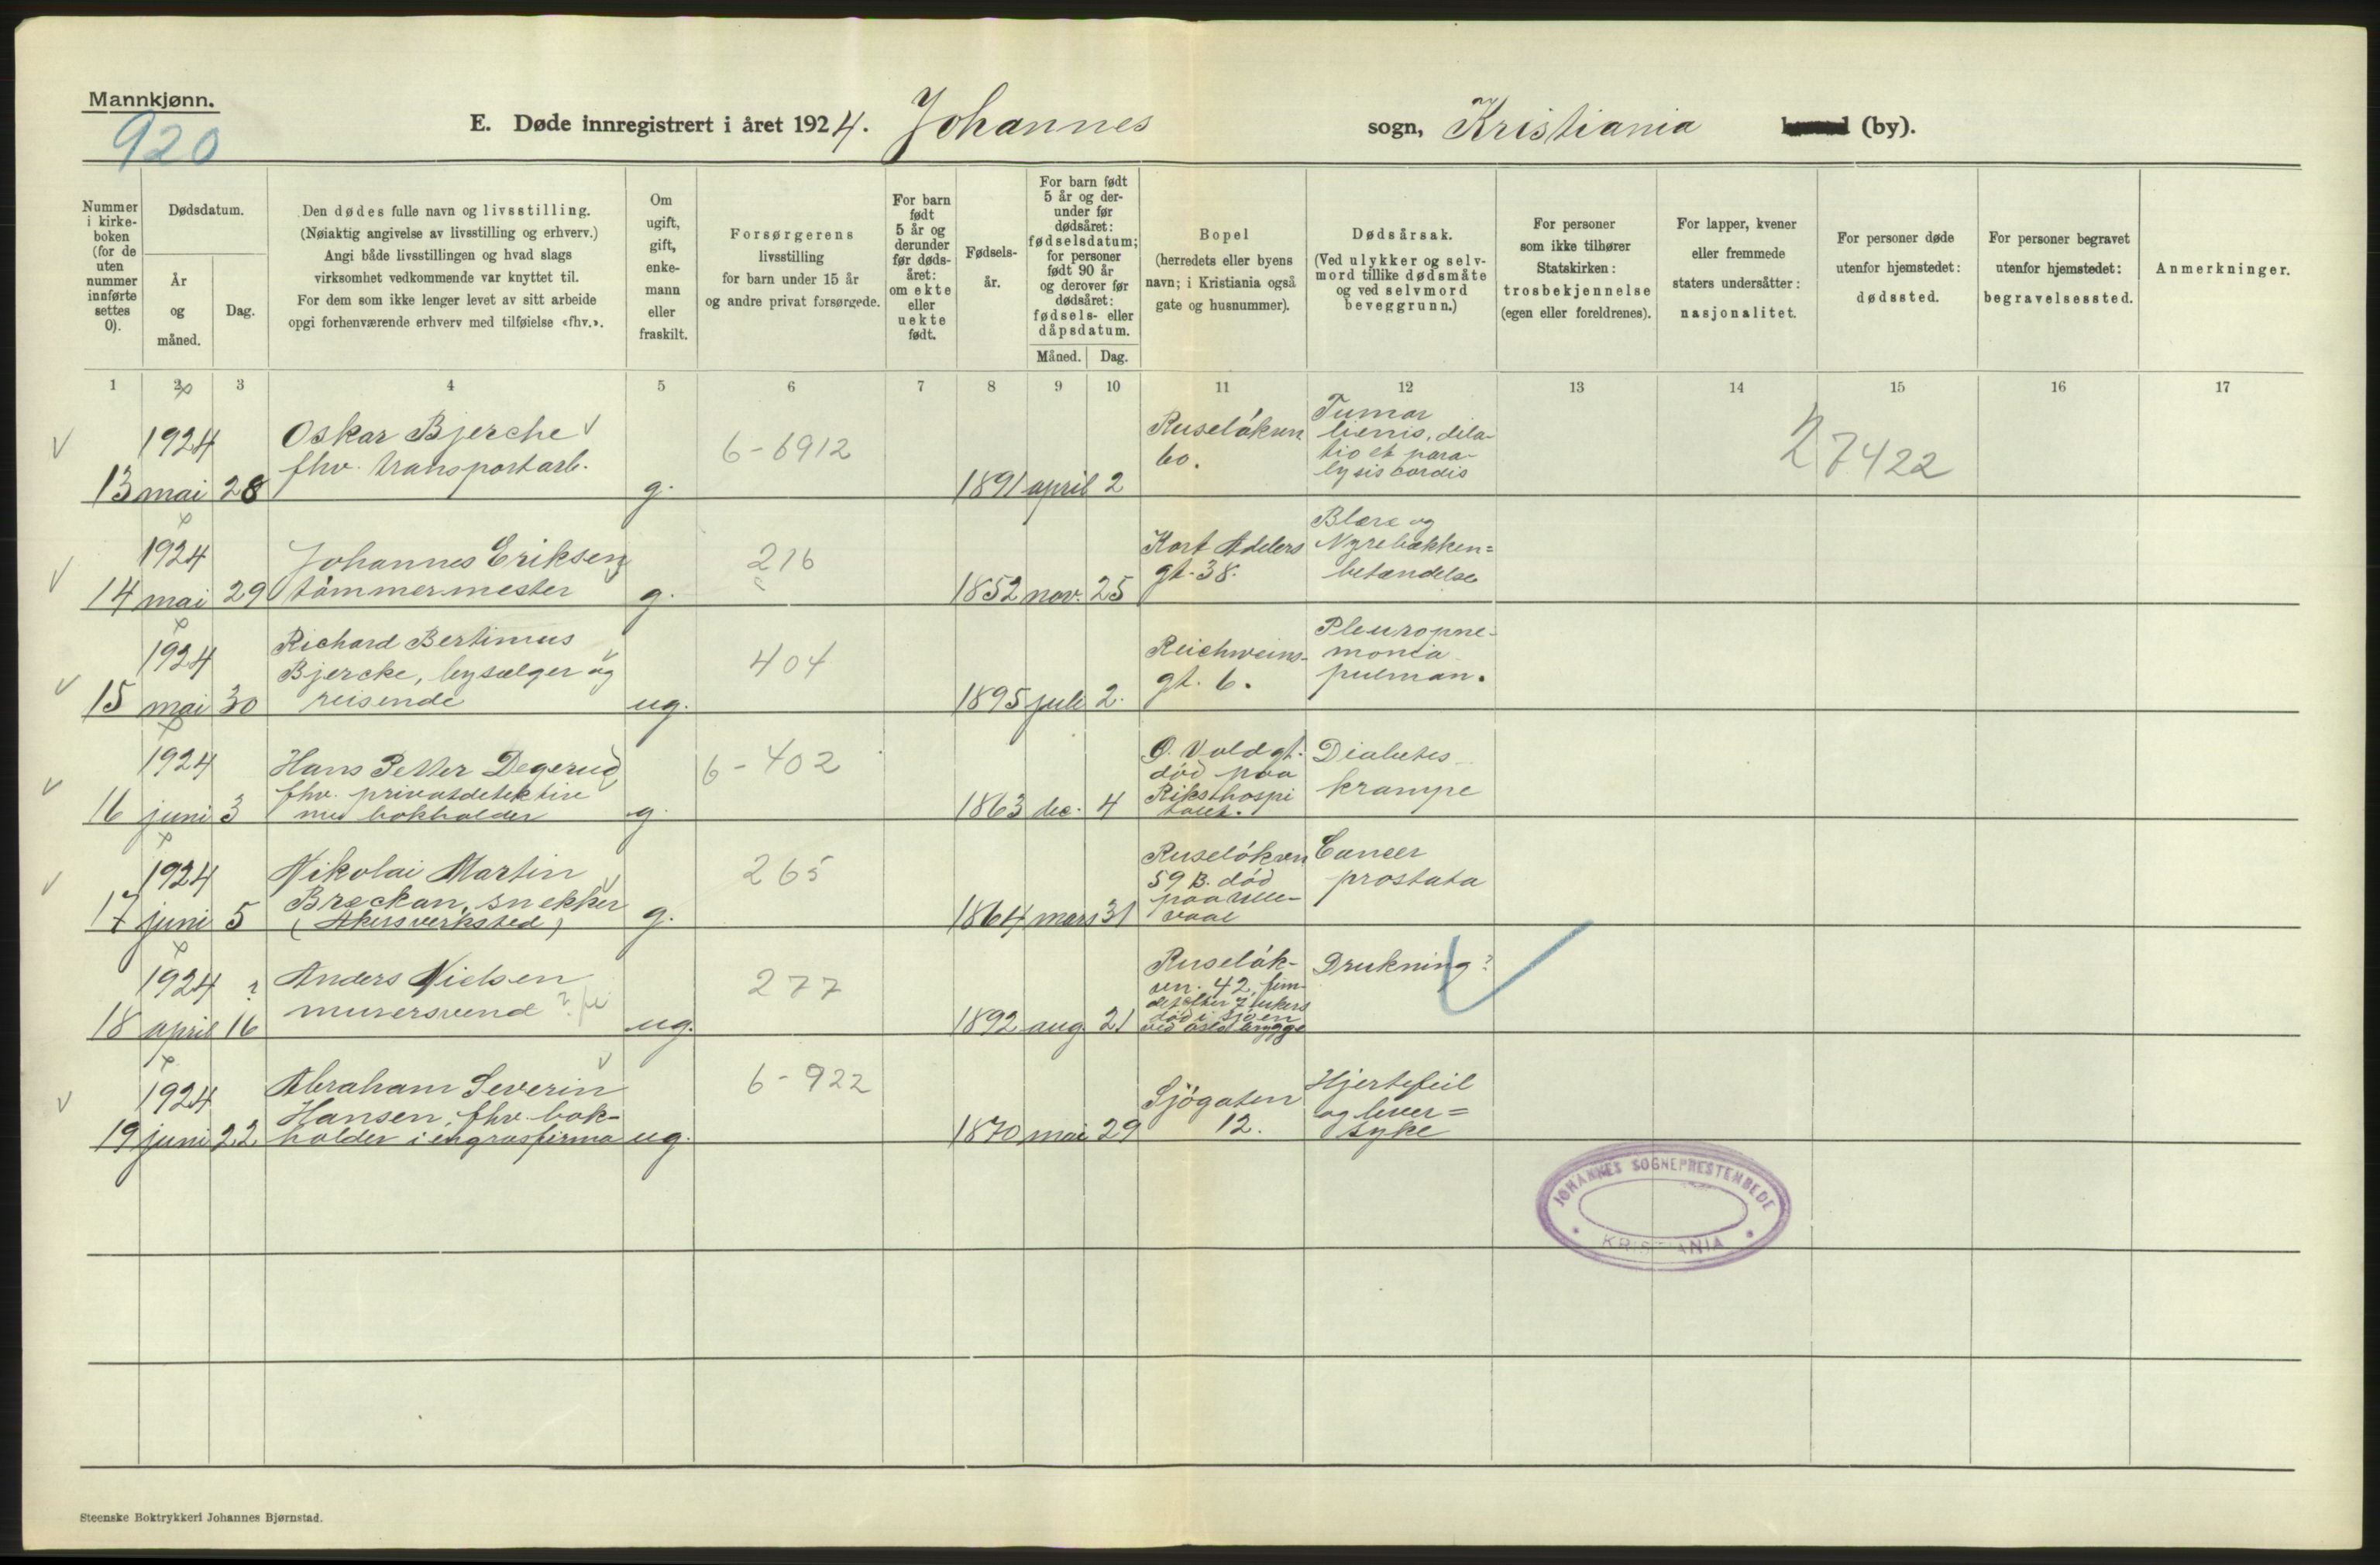 Mannkjønn.
920
E. Døde innregistrert i året 1924. Johannes sogn, Kristiania (by).
Nummer i kirke-boken (for de uten nummer innførte settes 0).
Dødsdatum.
År og måned.
Dag.
Den dødes fulle navn og livsstilling.
(Nøiaktig angivelse av livsstilling og erhverv.)
Angi både livsstillingen og hvad slags
virksomhet vedkommende var knyttet til.
For dem som ikke lenger levet av sitt arbeide
opgi forhenværende erhverv med tilføielse «fhv.».
Om ugift, gift, enke-mann eller fraskilt.
Forsørgerens
livsstilling
for barn under 15 år
og andre privat forsørgede.
For barn født 5 år og derunder før døds-året: om ekte eller uekte født.
Fødsels-år.
For barn født 5 år og der-under før dødsåret: fødselsdatum; for personer født 90 år og derover før dødsåret: fødsels- eller dåpsdatum.
Måned. Dag.
Bopel
(herredets eller byens
navn; i Kristiania også
gate og husnummer).
Dødsårsak.
(Ved ulykker og selv-
mord tillike dødsmåte
og ved selvmord
beveggrunn.)
For personer
som ikke tilhører
Statskirken:
trosbekjennelse
(egen eller foreldrenes).
For lapper, kvener
eller fremmede
staters undersåtter:
nasjonalitet.
For personer døde
utenfor hjemstedet:
dødssted.
For personer begravet
utenfor hjemstedet:
begravelsessted.
Anmerkninger.
1 2 3 4 5 6 7 8 9 10 11 12 13 14 15 16 17
13 1924 mai 28
Oskar Bjerche
fhv. transportarb.
g.
6-6912
1891 april 2
Ruseløkven
60.
Tumor
lienis, dila-
tio et para-
lysis cordis
27422
14 1924 mai 29
Johannes Eriksen
tømmermester
g.
216
1852 nov. 25
Kort Adelers
gt. 38.
Blære og
Nyrebækken=
betændelse
15 1924 mai 30
Richard Bertinius
Bjercke, bysælger og
reisende
ug.
404
1895 juli 2.
Reichweins-
gt. 6.
Pleuropne-
monia
pulman.
16 1924 juni 3
Hans Petter Degerud
fhv. privatdetektiv
nu bokholder
g.
6-402
1863 dec. 4
Ø. Voldgt.
død paa
Rikshospi
talet.
Diabetes
krampe
17 1924 juni 5
Nikolai Martin
Breckan, snekker
(Akersverksted)
g.
265
1864 mars 31
Ruseløkven
59 B. død
paa Ulle-
vaal
Cancer
prostata
18 1924 april 16 ?
Anders Nielsen
murersvend
ug.
277
1892 aug. 21
Ruseløk-
ven. 42, fun-
det efter 7 ukers
død i sjøen
ved Oslo brygge
Drukning?
19 1924 juni 22
Abraham Severin
Hansen, fhv. bok-
holder i engrosfirma
ug.
6-922
1870 mai 29
Sjøgaten
12.
Hjertefeil
og lever=
syke
JOHANNES SOGNEPRESTEMBEDE
KRISTIANIA
Steenske Boktrykkeri Johannes Bjørnstad.